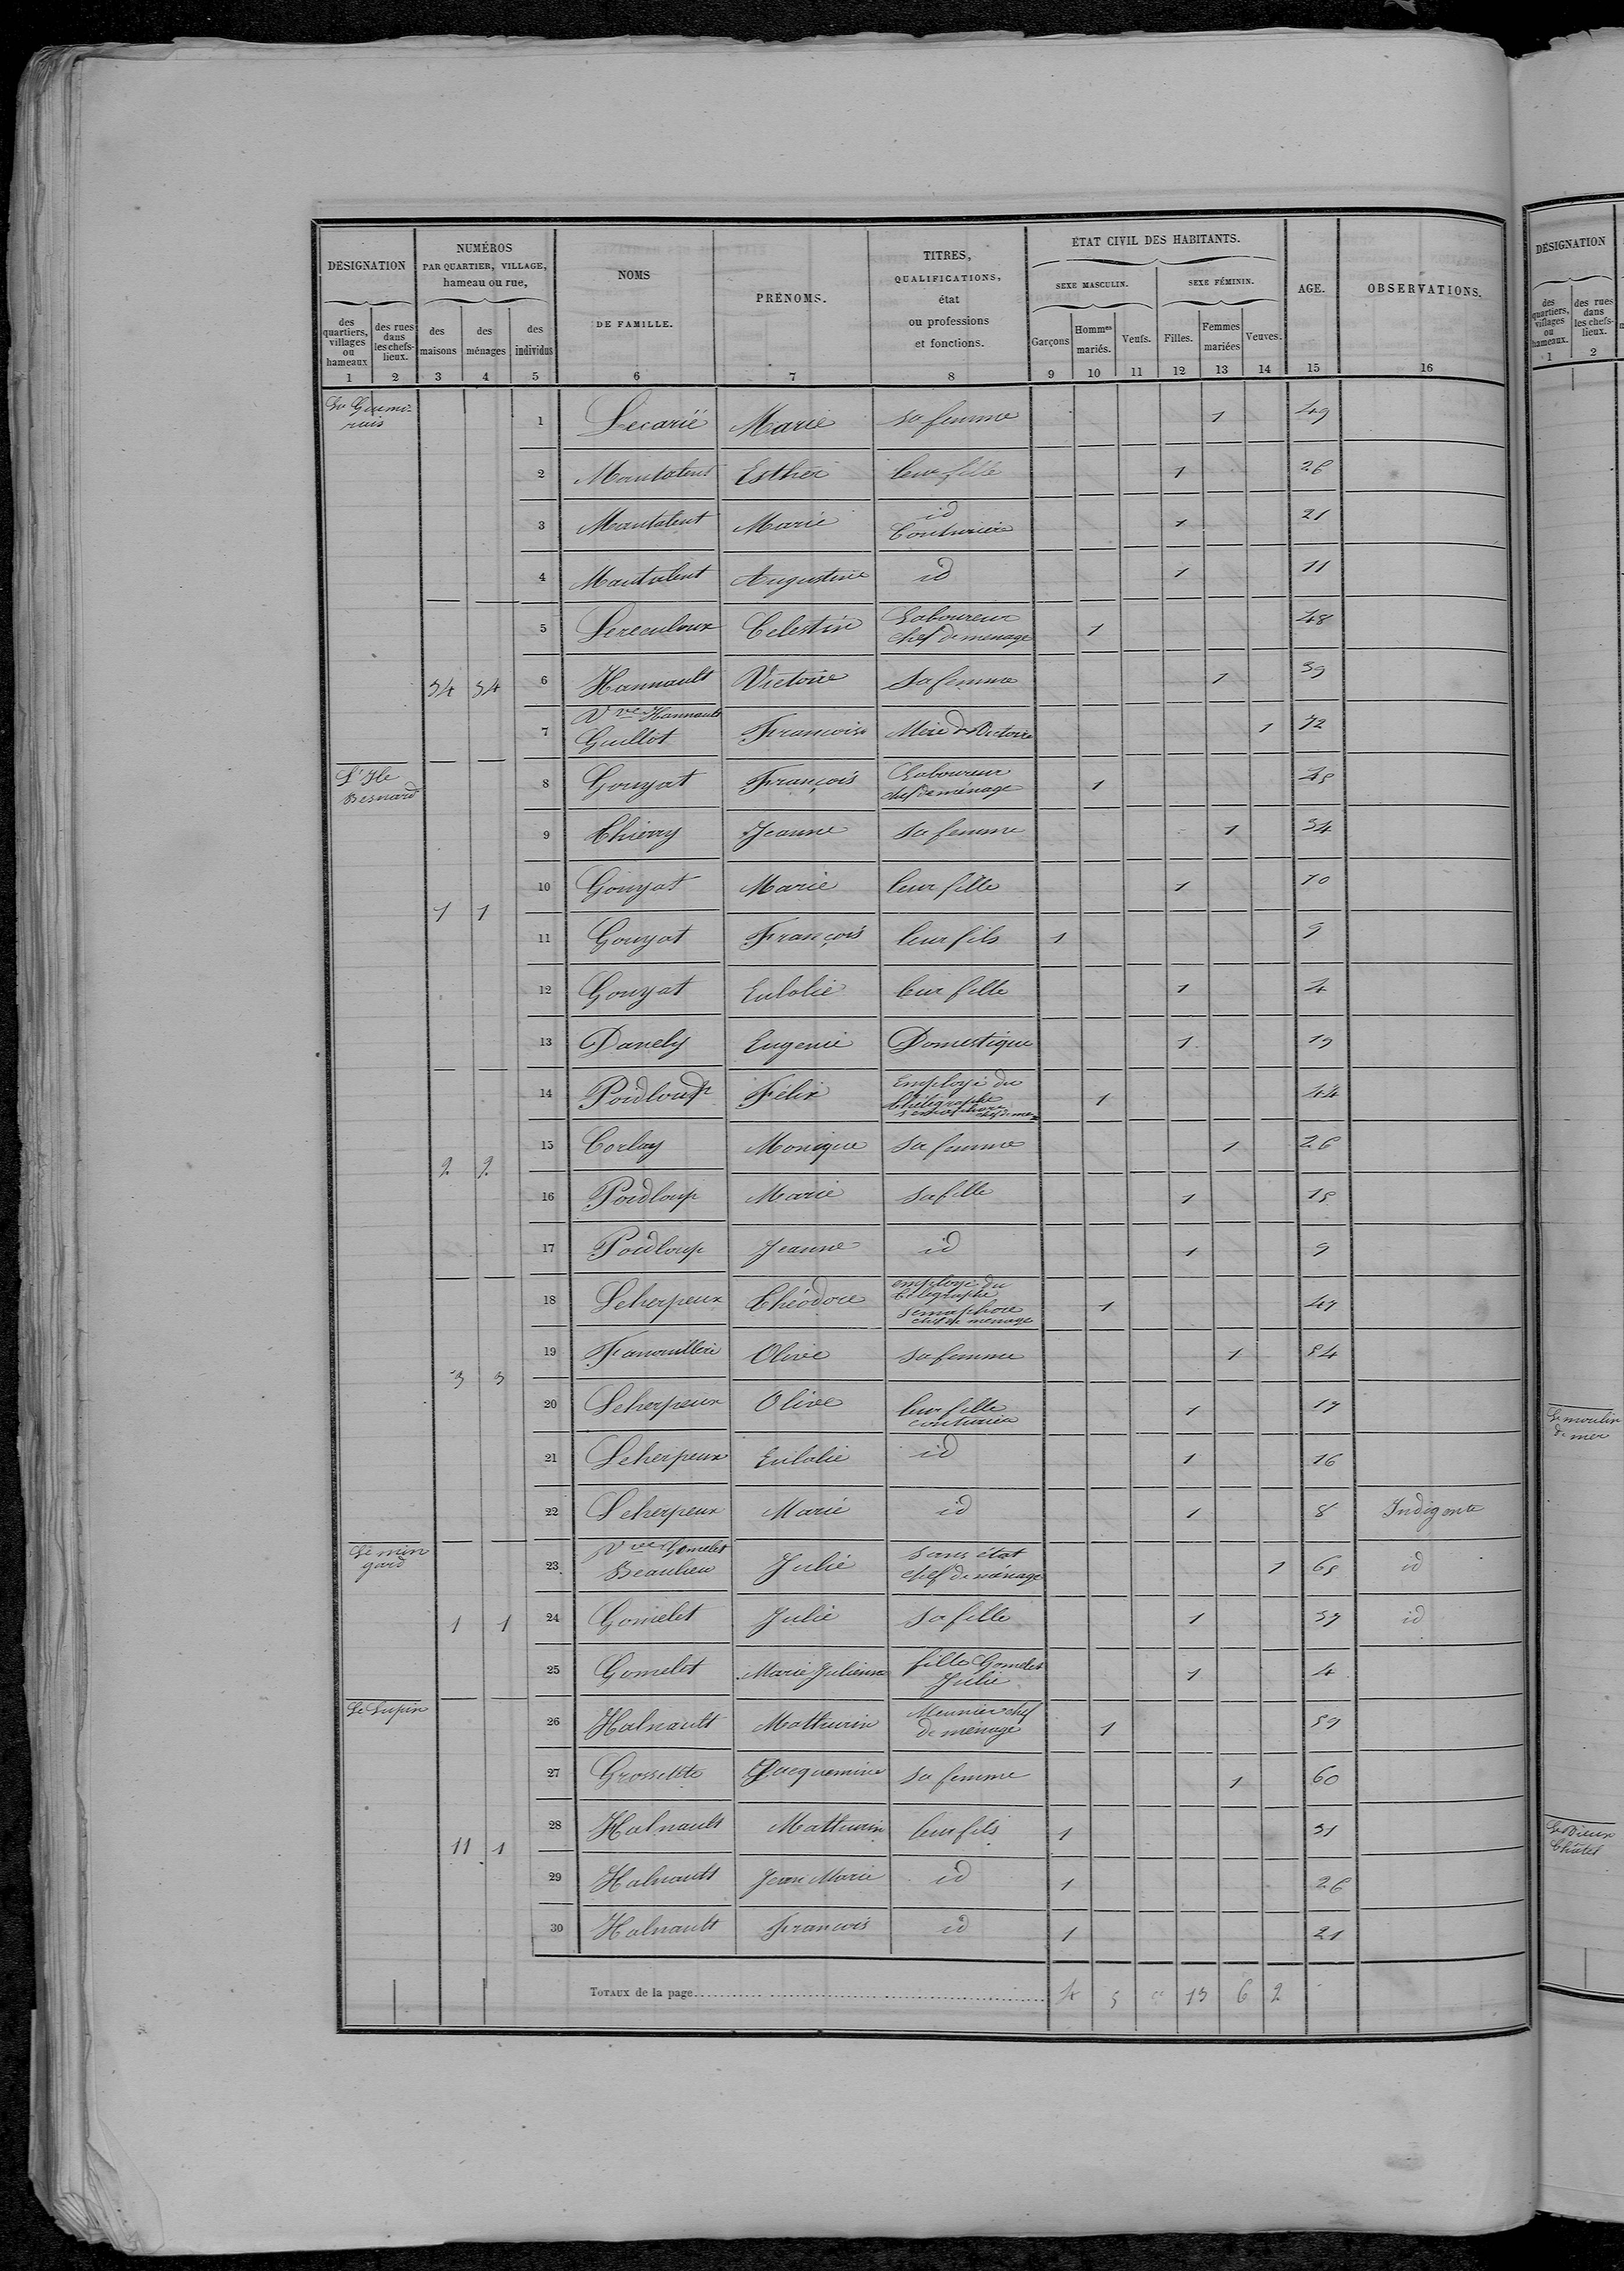 DÉSIGNATION
NUMÉROS
PAR QUARTIER, VILLAGE,
hameau ou rue,
NOMS
DE FAMILLE.
PRÉNOMS.
TITRES,
QUALIFICATIONS,
état
ou professions
et fonctions.
ÉTAT CIVIL DES HABITANTS.
SEXE MASCULIN.
SEXE FÉMININ.
AGE.
OBSERVATIONS.
des quartiers, villages ou hameaux
des rues dans les chefs-lieux.
des maisons
des ménages
des individus
Garçons
Hommes mariés.
Veufs.
Filles.
Femmes mariées
Veuves.
1 2 3 4 5 6 7 8 9 10 11 12 13 14 15 16
1 Lecarië Marie sa femme 1 49
2 Mautalent Esther leur fille 1 26
3 Mautalent Marie id Couturière 1 21
4 Mautalent Augustine id 1 11
5 Lereculoux Celestin Laboureur chef de menage 1 48
34 34 6 Hannault Victoire Sa femme 1 39
7 Vve Hannault Guillot Francoise Mère de Victoire 1 72
L'Ile Besnard
8 Gouyat François Laboureur chef de ménage 1 45
9 Thierry Jeanne sa femme 1 34
10 Gouyat Marie leur fille 1 10
1 1
11 Gouyat François leur fils 1 9
12 Gouyat Eulolie leur fille 1 4
13 Danely Eugenie Domestique 1 19
14 Poidloup Félix Employé du Thélégraphe 1 44
15 Corlay Monique sa femme 1 26
2 2
16 Poidloup Marie sa fille 1 15
17 Poidloup Jeanne id 1 9
18 Leherpeux Théodore employé du télégraphe semaphore chef de menage 1 47
19 Fanouillère Olive sa femme 1 54
3 3
20 Leherpeux Olive leur fille couturiea 1 17
21 Leherpeux Eulolie id 1 16
22 Leherpeux Marie id 1 8 Indigente
Le min gard
23 Vve Gomelet Beaulieu Julie sans état chef de ménage 1 65 id
1 1 24 Gomelet Julie Sa fille 1 37 id
25 Gomelet Marie Julienne fille Gomelet Julie 1 4
Le Lupin
26 Halnault Mathurin Meunier chef de ménage 1 59
27 Grossetête Jacquemine sa femme 1 60
28 Halnault Mathurin leur fils 1 31
11 1
29 Halnault Jean Marie id 1 26
30 Halnault Francois id 1 21
TOTAUX de la page 4 5 " 13 6 2
DÉSIGNATION
des quartiers, villages ou hameaux.
des rues dans les chefs-lieux.
1 2
Le moulin
de mer
Le Vieux
Châtel